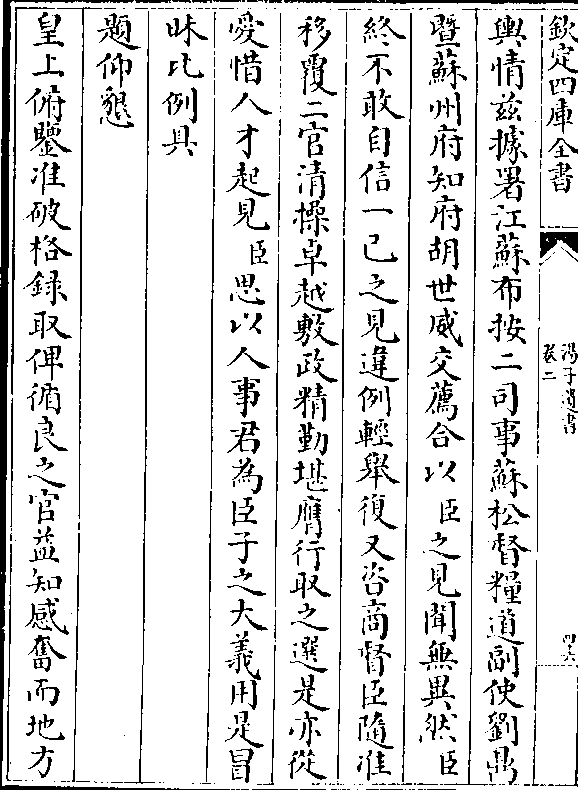 欽定四庫全書
湯子遺書
卷二
四六
輿情兹據署江蘇布按二司事蘇松督糧道副使劉鼎
暨蘇州府知府胡世威交薦合以臣之見聞無異然臣
終不敢自信一己之見違例輕舉復又咨商督臣隨准
移覆二官清操卓越敷政精勤堪膺行取之選是亦從
愛惜人才起見臣思以人事君為臣子之大義用是冒
昧比例具
題仰懇
皇上俯鑒准破格録取俾循良之官益知感奮而地方